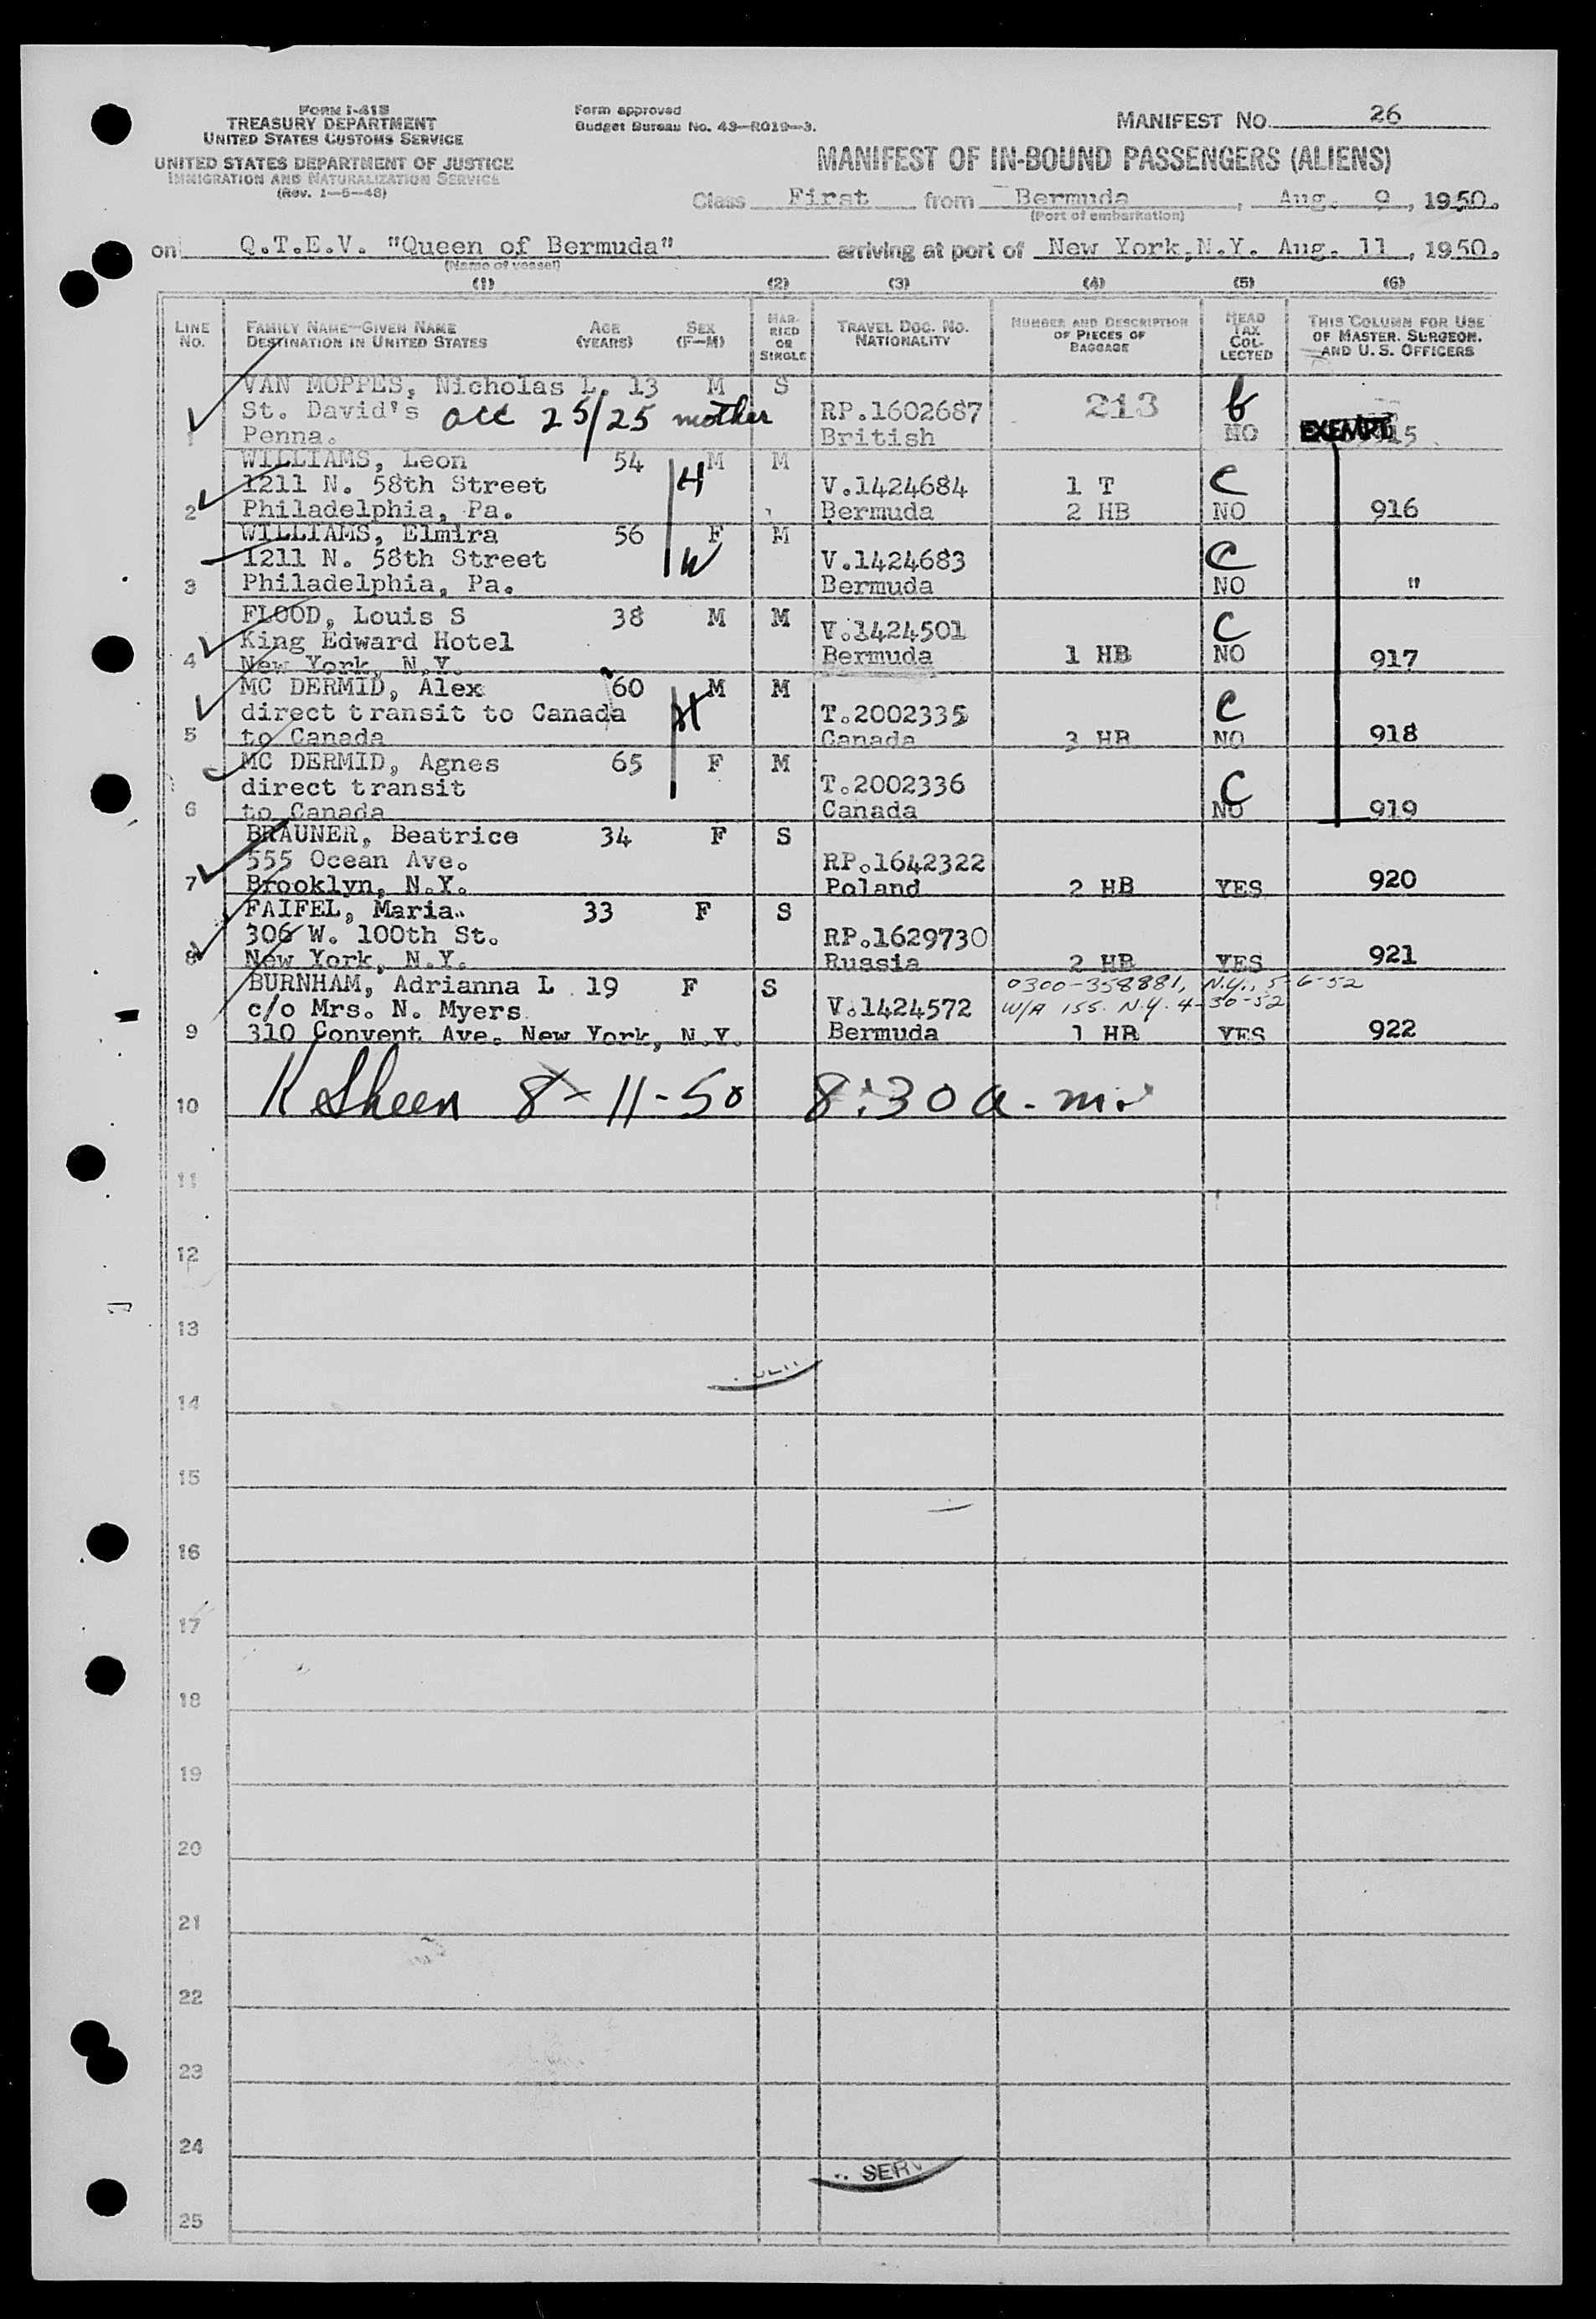 FORM I-418
TREASURY DEPARTMENT
UNITED STATES CUSTOMS SERVICE
UNITED STATES DEPARTMENT OF JUSTICE
IMMIGRATION AND NATURALIZATION SERVICE
(Rev. 1-5-48)
Form approved
Budget Bureau No. 43-R019-3.
MANIFEST NO. 26
MANIFEST OF IN-BOUND PASSENGERS (ALIENS)
Class First from Bermuda, Aug. 9, 1950.
(Port of embarkation)
on Q.T.E.V. "Queen of Bermuda" arriving at port of New York, N.Y. Aug. 11, 1950.
(Name of vessel)
(1) (2) (3) (4) (5) (6)
LINE NO. FAMILY NAME-GIVEN NAME DESTINATION IN UNITED STATES AGE (YEARS) SEX (F-M) MARRIED OR SINGLE TRAVEL DOC. NO. NATIONALITY NUMBER AND DESCRIPTION OF PIECES OF BAGGAGE HEAD TAX COLLECTED THIS COLUMN FOR USE OF MASTER, SURGEON, AND U. S. OFFICERS
VAN MOPPES, Nicholas L. 13 M S
St. David's acc 25/25 mother RP.1602687 213
1 Penna. British NO EXEMPT 15
WILLIAMS, Leon 54 M M
1211 N. 58th Street H V.1424684 1 T C
2 Philadelphia, Pa. Bermuda 2 HB NO 916
WILLIAMS, Elmira 56 F M
1211 N. 58th Street W V.1424683 C
3 Philadelphia, Pa. Bermuda NO "
FLOOD, Louis S 38 M M
King Edward Hotel V.1424501 C
4 New York, N.Y. Bermuda 1 HB NO 917
MC DERMID, Alex 60 M M
direct transit to Canada H T.2002335 C
5 to Canada Canada 3 HB NO 918
MC DERMID, Agnes 65 F M
direct transit T.2002336 C
6 to Canada Canada NO 919
BRAUNER, Beatrice 34 F S
555 Ocean Ave. RP.1642322
7 Brooklyn, N.Y. Poland 2 HB YES 920
FAIFEL, Maria. 33 F S
306 W. 100th St. RP.1629730
8 New York, N.Y. Russia 2 HB YES 921
BURNHAM, Adrianna L 19 F S 0300-358881, N.Y., 5-6-52
c/o Mrs. N. Myers V.1424572 W/A 155. N.Y. 4-30-52
9 310 Convent Ave. New York, N.Y. Bermuda 1 HB YES 922
10 K Sheen 8-11-50 8:30 a.m.
11
12
13
14
15
16
17
18
19
20
21
22
23
24
SERV
25